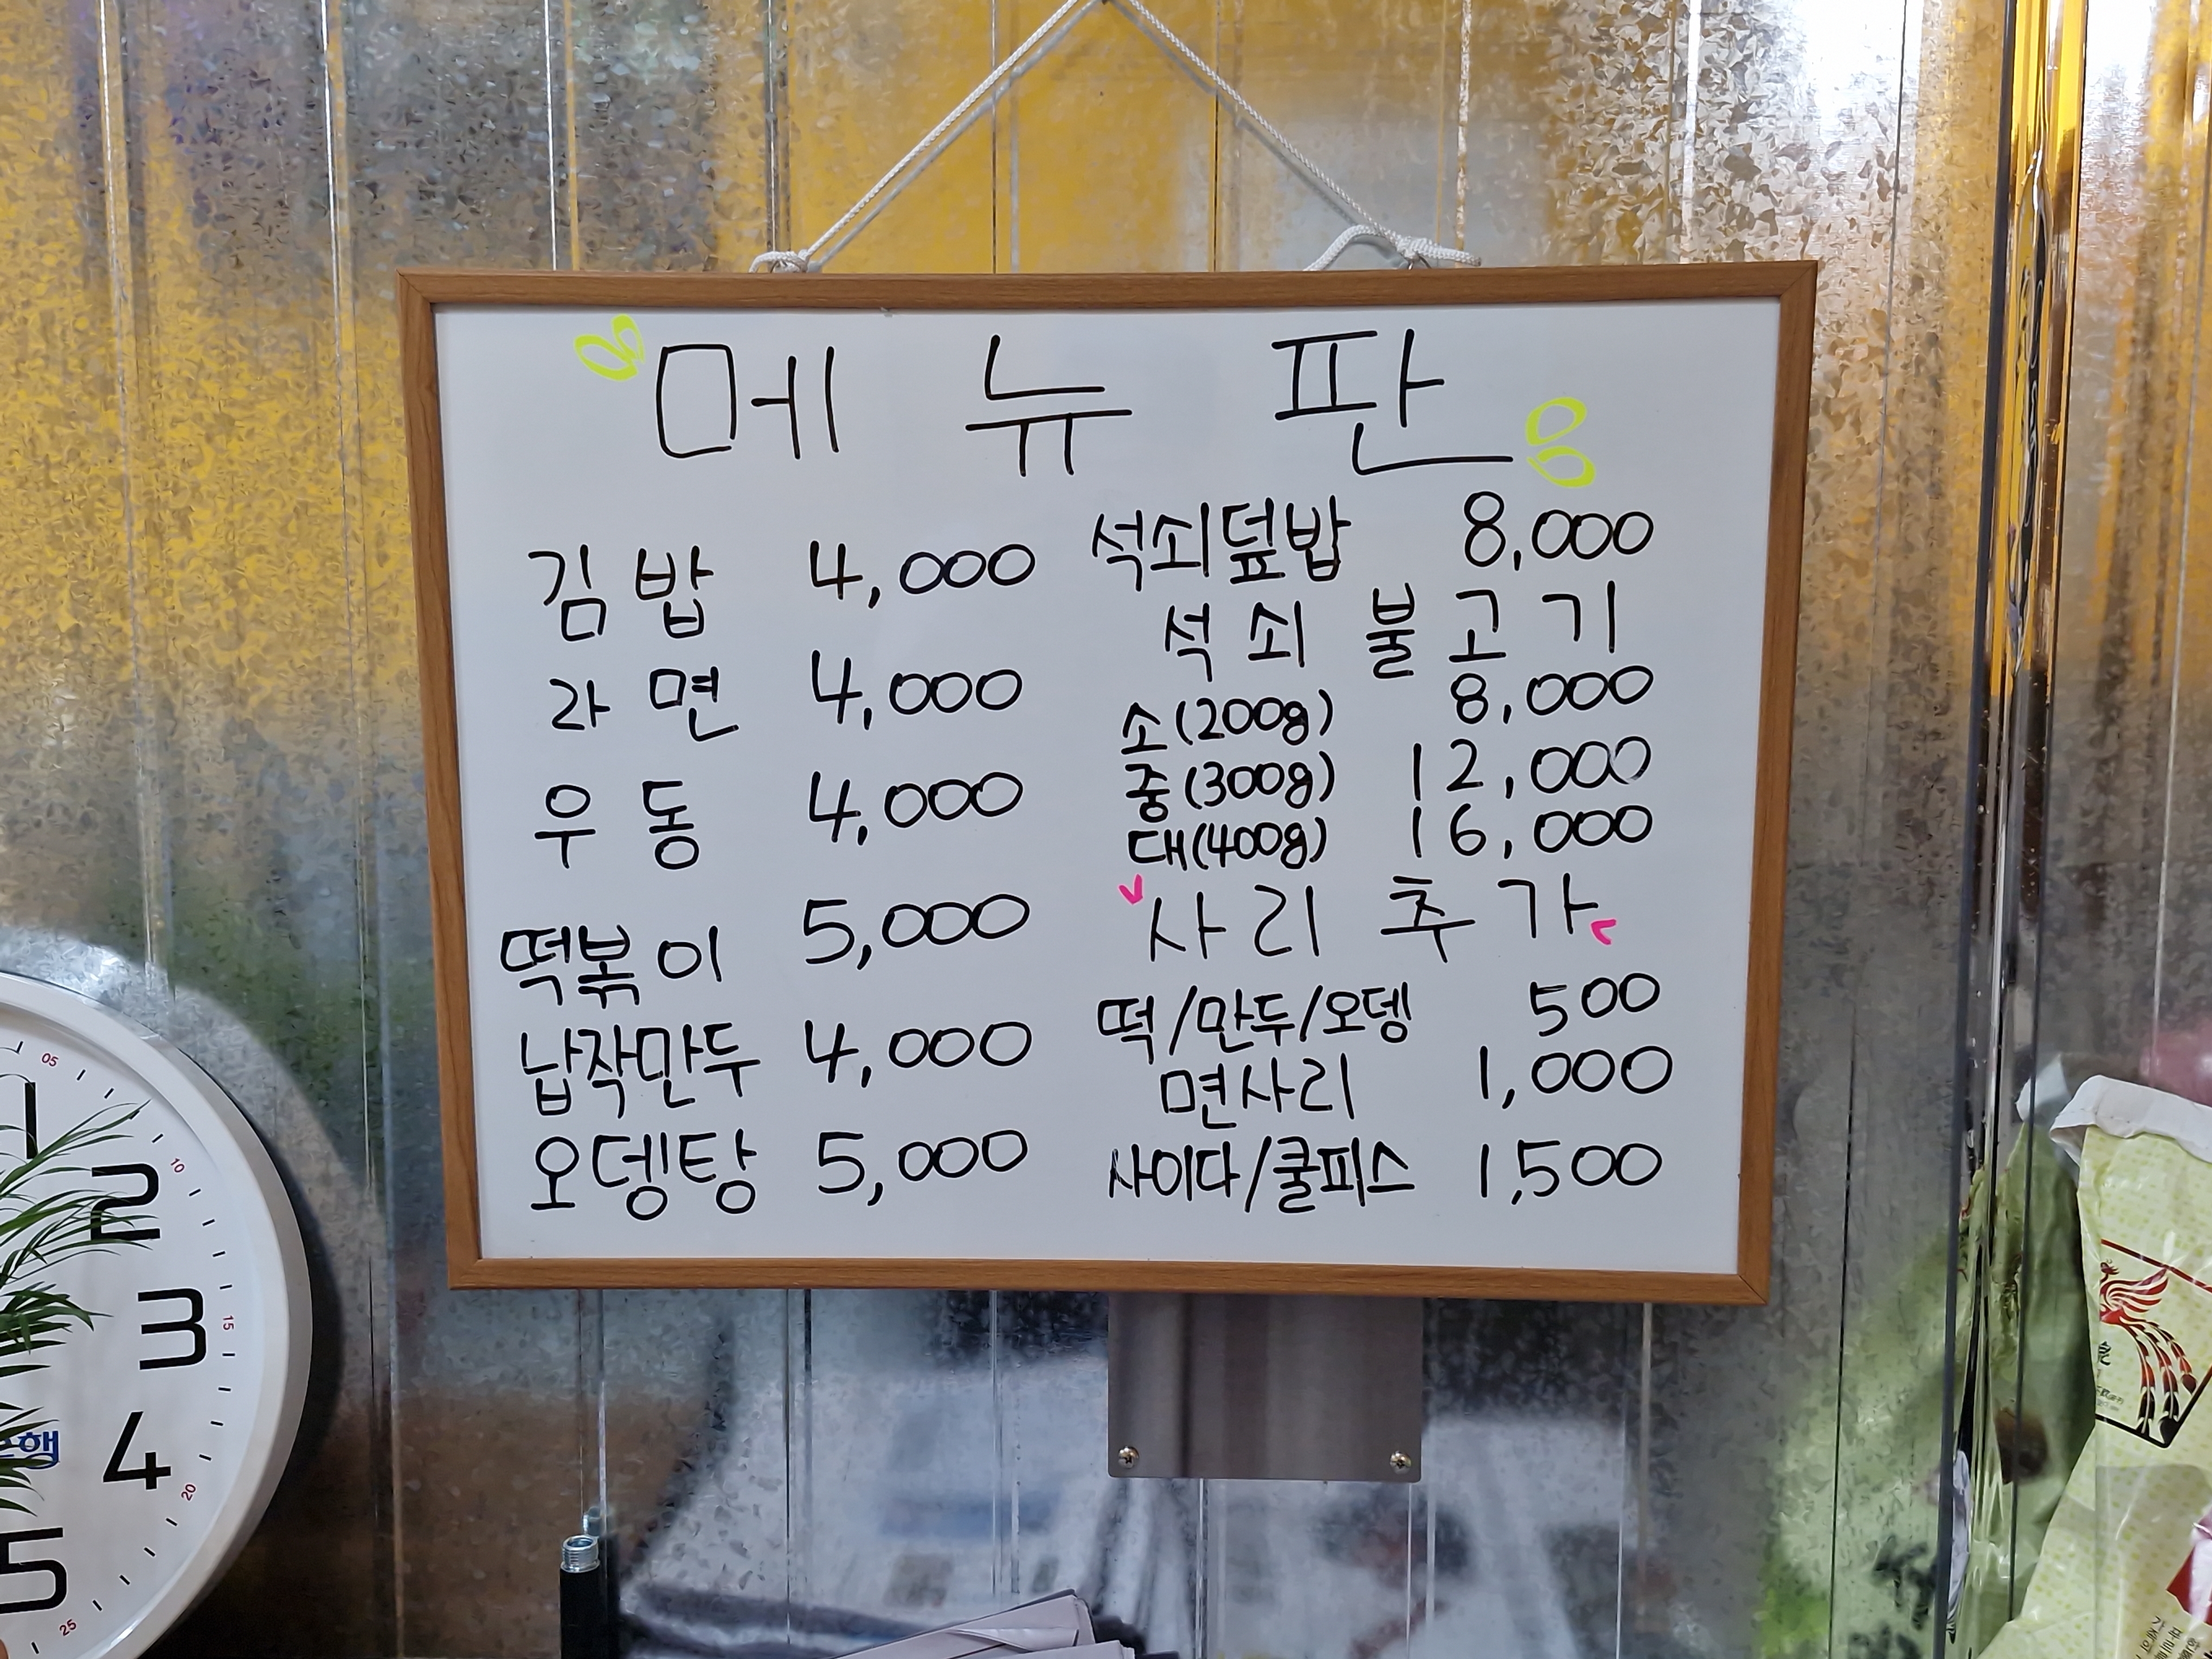 메뉴판
김밥 4,000
라면 4,000
우동 4,000
떡볶이 5,000
납작만두 4,000
오뎅탕 5,000
석쇠덮밥 8,000
석쇠 불고기
소(200g) 8,000
중(300g) 12,000
대(400g) 16,000
사리추가
떡/만두/오뎅 500
면사리 1,000
사이다/쿨피스 1,500
05
1
10
2
15
3
20
4
25
5